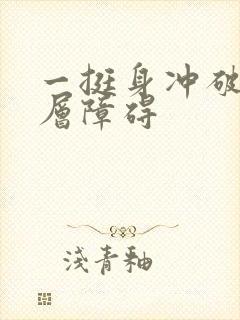 一挺身冲破
层障碍
浅青釉